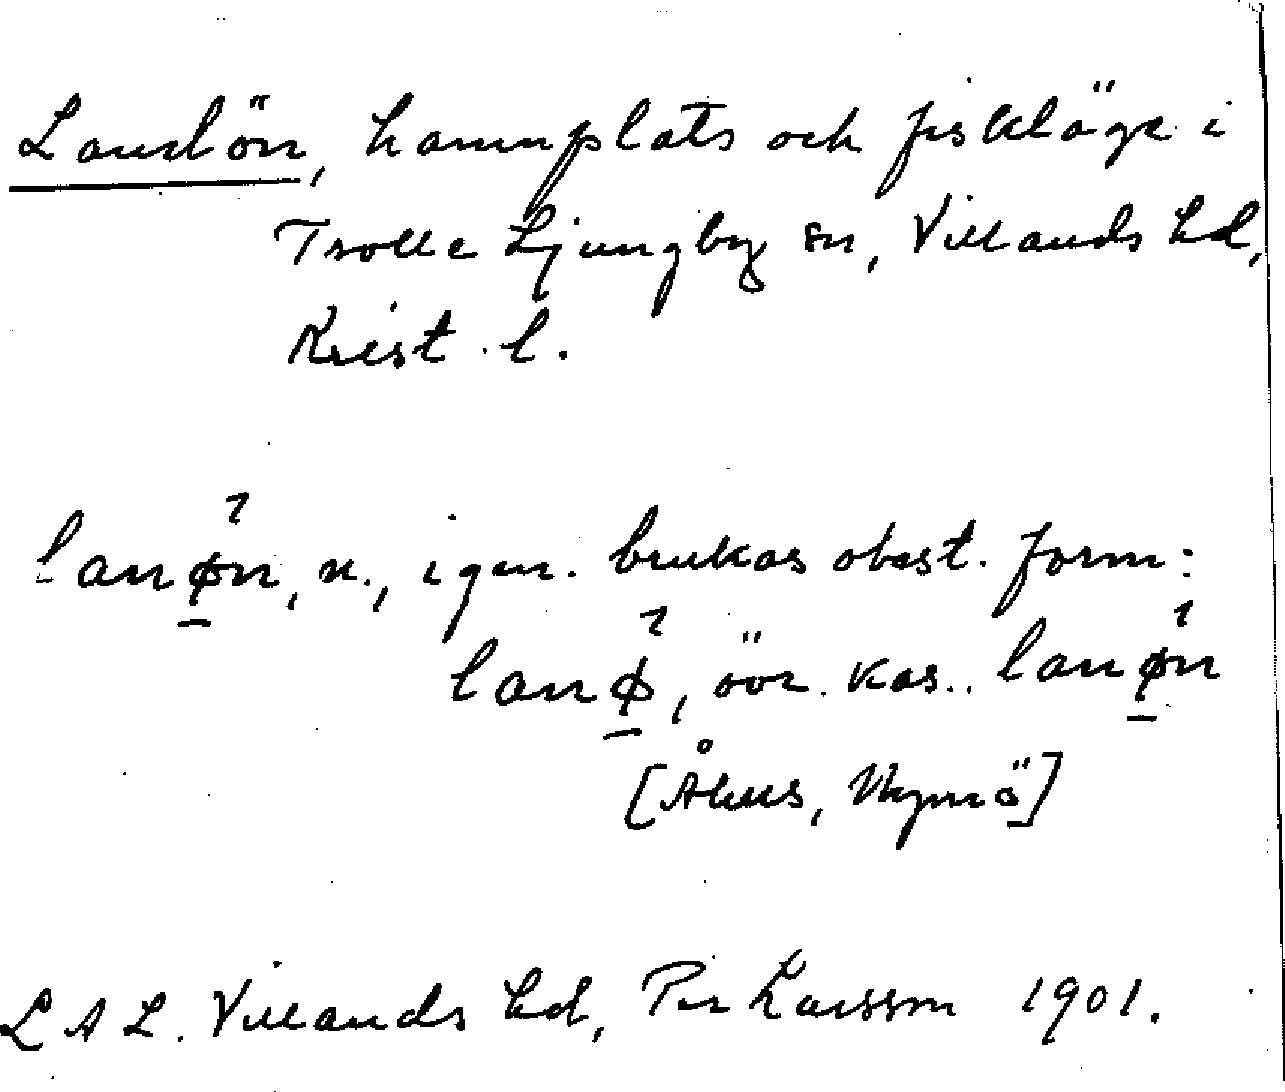 Landön, hamnplats och fiskläge i
Trolle Ljungby sn, Villands hd,
Krist. l.
lanø̠n, n., i gen. brukas obest. form:
lanø̠, övr. kas. lanø̠n
[Åhus, Nymö]
LAL. Villands hd, Per Larsson 1901.